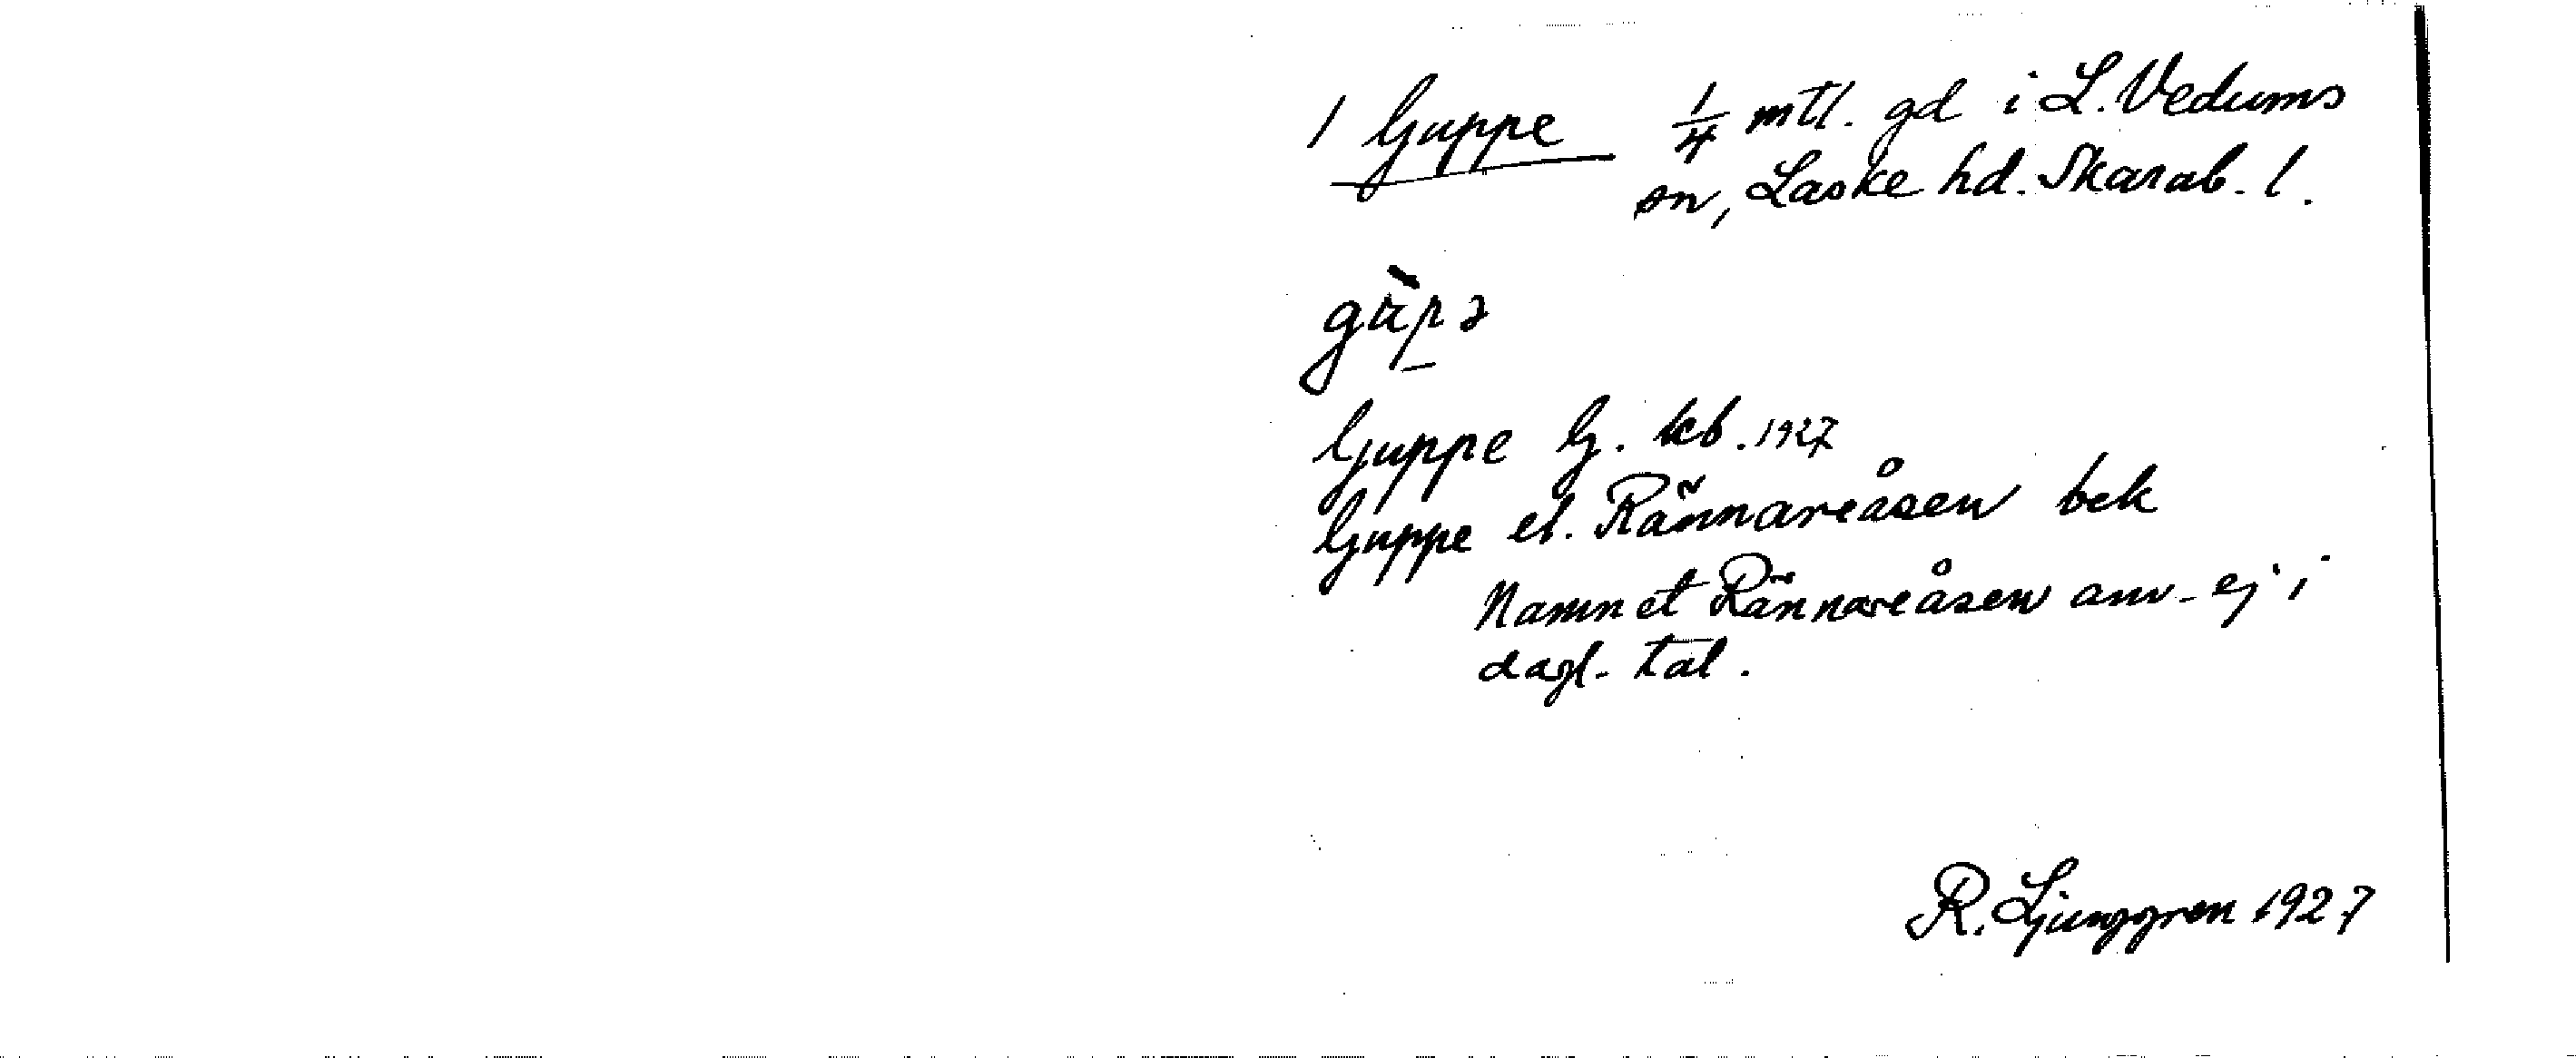 1 Guppe 1/4 mtl. gd i L. Vedums
sn, Laske hd. Skarab. l.
gùpə
Guppe G. kb. 1927
Guppe el. Rännareåsen bek
Namnet Rännareåsen anv. ej i
dagl. tal.
R. Ljunggren 1927